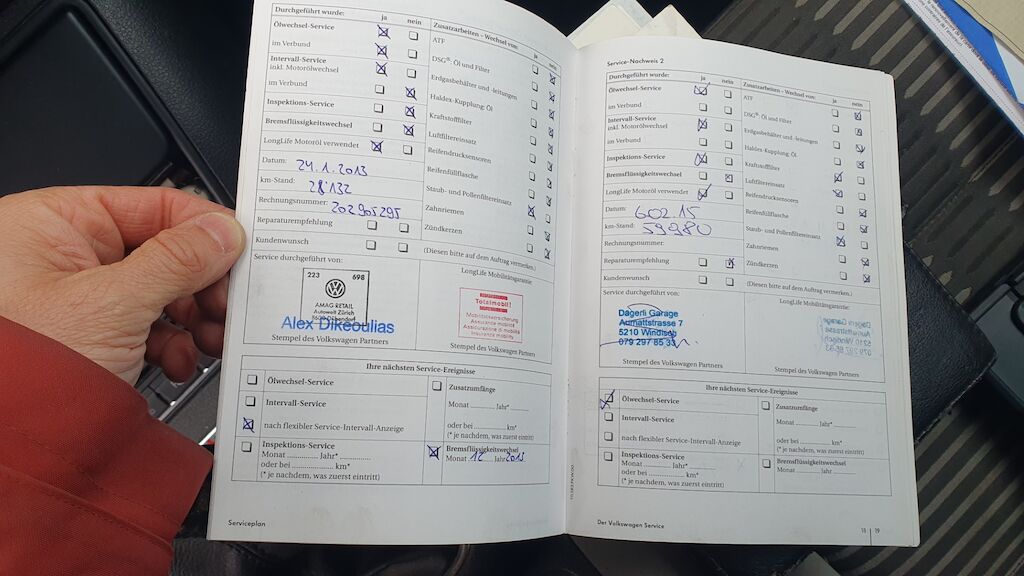 Durchgeführt wurde:
ja
nein
Ölwechsel-Service
im Verbund
Intervall-Service
inkl. Motorölwechsel
im Verbund
Inspektions-Service
Bremsflüssigkeitswechsel
LongLife Motoröl verwendet
Datum: 24.1.2013
km-Stand: 28'132
Rechnungsnummer: 202905295
Reparaturempfehlung
Kundenwunsch
Zusatzarbeiten – Wechsel von:
ja
nein
ATF
DSG®: Öl und Filter
Erdgasbehälter und -leitungen
Haldex-Kupplung: Öl
Kraftstoffilter
Luftfiltereinsatz
Reifendrucksensoren
Reifenfüllflasche
Staub- und Pollenfiltereinsatz
Zahnriemen
Zündkerzen
(Diesen bitte auf dem Auftrag vermerken.)
Service durchgeführt von:
223 698
AMAG RETAIL
Autowelt Zürich
Alex Dikeoulias
Stempel des Volkswagen Partners
LongLife Mobilitätsgarantie:
Totalmobil!
Mobilitätsversicherung
Assurance mobilité
Assicurazione di mobilità
Insurance mobility
Stempel des Volkswagen Partners
Ihre nächsten Service-Ereignisse
Ölwechsel-Service
Intervall-Service
nach flexibler Service-Intervall-Anzeige
Inspektions-Service
Monat Jahr*
oder bei km*
(* je nachdem, was zuerst eintritt)
Zusatzumfänge
Monat Jahr*
oder bei km*
(* je nachdem, was zuerst eintritt)
Bremsflüssigkeitswechsel
Monat 12 Jahr 2013
Serviceplan
Service-Nachweis 2
Durchgeführt wurde:
ja
nein
Ölwechsel-Service
im Verbund
Intervall-Service
inkl. Motorölwechsel
im Verbund
Inspektions-Service
Bremsflüssigkeitswechsel
LongLife Motoröl verwendet
Datum: 6.02.15
km-Stand: 59980
Rechnungsnummer:
Reparaturempfehlung
Kundenwunsch
Zusatzarbeiten – Wechsel von:
ja
nein
ATF
DSG®: Öl und Filter
Erdgasbehälter und -leitungen
Haldex-Kupplung: Öl
Kraftstoffilter
Luftfiltereinsatz
Reifendrucksensoren
Reifenfüllflasche
Staub- und Pollenfiltereinsatz
Zahnriemen
Zündkerzen
(Diesen bitte auf dem Auftrag vermerken.)
Service durchgeführt von:
Dagerli Garage
Aumattstrasse 7
5210 Windisch
079 297 85 33
Stempel des Volkswagen Partners
LongLife Mobilitätsgarantie:
Stempel des Volkswagen Partners
Ihre nächsten Service-Ereignisse
Ölwechsel-Service
Intervall-Service
nach flexibler Service-Intervall-Anzeige
Inspektions-Service
Monat Jahr*
oder bei km*
(* je nachdem, was zuerst eintritt)
Zusatzumfänge
Monat Jahr*
oder bei km*
(* je nachdem, was zuerst eintritt)
Bremsflüssigkeitswechsel
Monat Jahr
Der Volkswagen Service
18 | 19